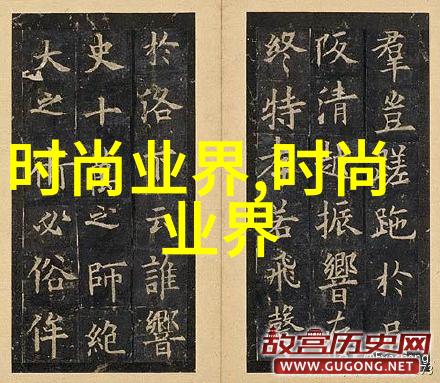 羣豈蹉跎於
阪清越振響
終特若飛
於洛云誰響
史十之師絕
大之必俗侔
时尚业界,时尚
业界
故宫历史网
WWW.GUGONG.NET